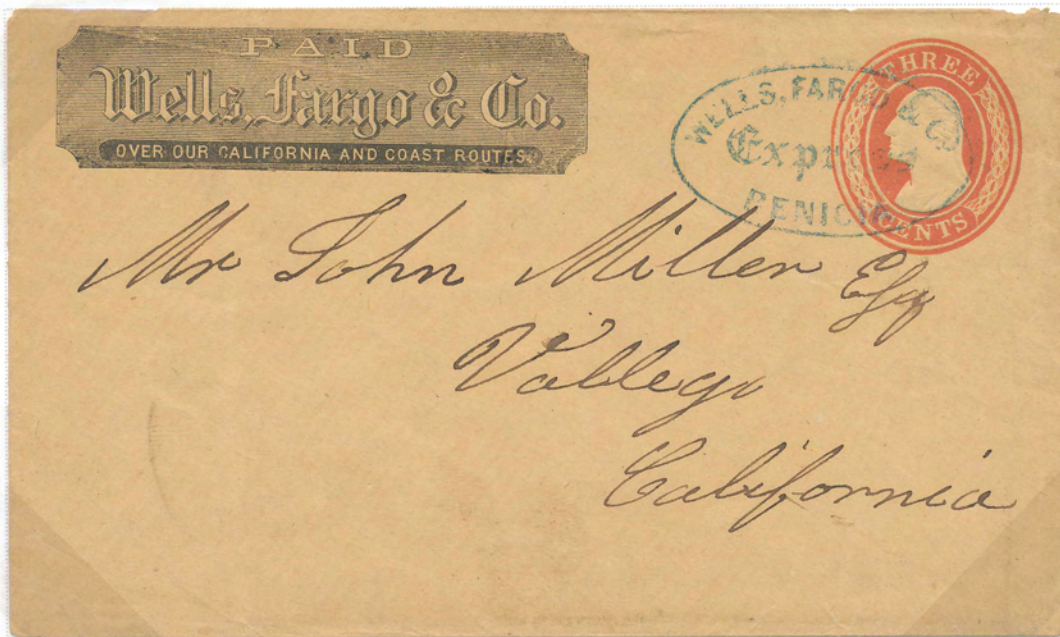 PAID
Wells, Fargo & Co.
OVER OUR CALIFORNIA AND COAST ROUTES.
WELLS, FARGO & Co
Express
BENICIA
THREE
CENTS
Mr John Miller Esq
Vallejo
California